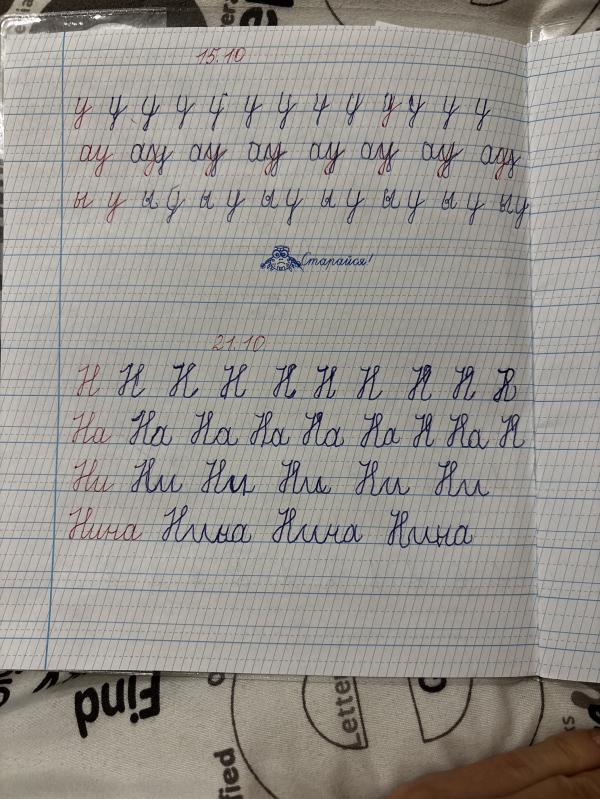 15.10
у у у у у у у у у у у у у
ау ау ау ау ау ау ау ау
ы у ы у ы у ы у ы у ы у ы у ыу
Старайся!
21.10
Н Н Н Н Н Н Н Н Н Н
На На На На На На Н На Н
Ни Ни Ни Ни Ни Ни
Нина Нина Нина Нина
Find
Letter